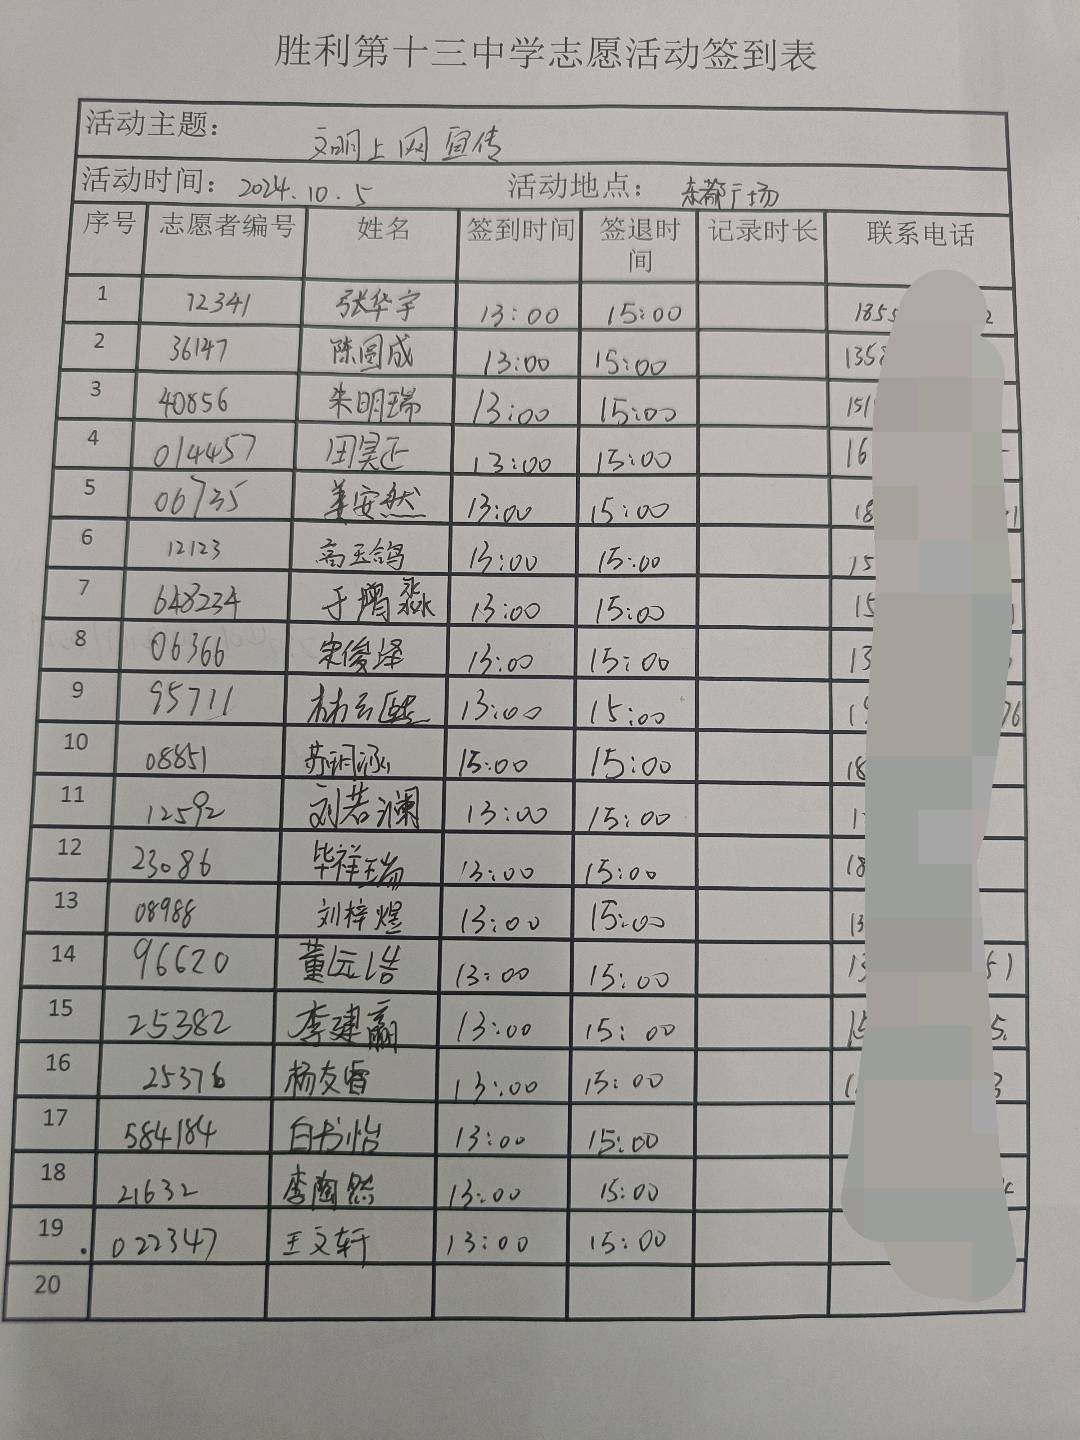 胜利第十三中学志愿活动签到表
活动主题： 文明上网宣传
活动时间：2024.10.5 活动地点：东都广场
序号 志愿者编号 姓名 签到时间 签退时间 记录时长 联系电话
1 12341 张华宇 13:00 15:00 1855 2
2 36147 陈圆成 13:00 15:00 1358
3 40856 朱明瑞 13:00 15:00 151
4 014457 田昊正 13:00 15:00 16
5 06735 姜安然 13:00 15:00 18 1
6 12123 高玉鸽 13:00 15:00 15
7 648234 于增淼 13:00 15:00 15
8 06366 宋俊泽 13:00 15:00 13
9 95711 林 13:00 15:00 1 76
10 08851 苏词涵 15:00 15:00 18
11 12592 刘若澜 13:00 15:00 1
12 23086 毕祥瑞 13:00 15:00 18
13 08988 刘梓煜 13:00 15:00 13
14 96620 董沅浩 13:00 15:00 13 51
15 25382 李建赢 13:00 15:00 15 5.
16 25376 杨友睿 13:00 15:00 1 3
17 584184 白书怡 13:00 15:00
18 21632 李陶然 13:00 15:00
19 022347 王文轩 13:00 15:00
20